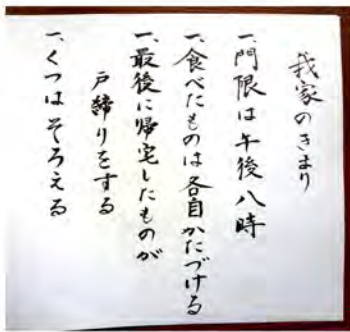 我家のきまり
一、門限は午後八時
一、食べたものは各自かたづける
一、最後に帰宅したものが
戸締りをする
一、くつはそろえる